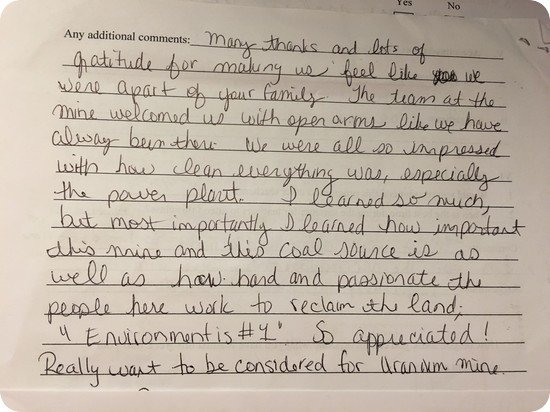 Yes No
Any additional comments: Many thanks and lots of
gratitude for making us feel like we
were apart of your family. The team at the
mine welcomed us with open arms like we have
alway been there. We were all so impressed
with how clean everything was, especially
the power plant. I learned so much,
but most importantly I learned how important
this mine and this coal source is as
well as how hard and passionate the
people here work to reclaim the land;
"Environment is #1" So appreciated!
Really want to be considered for Uranium mine.